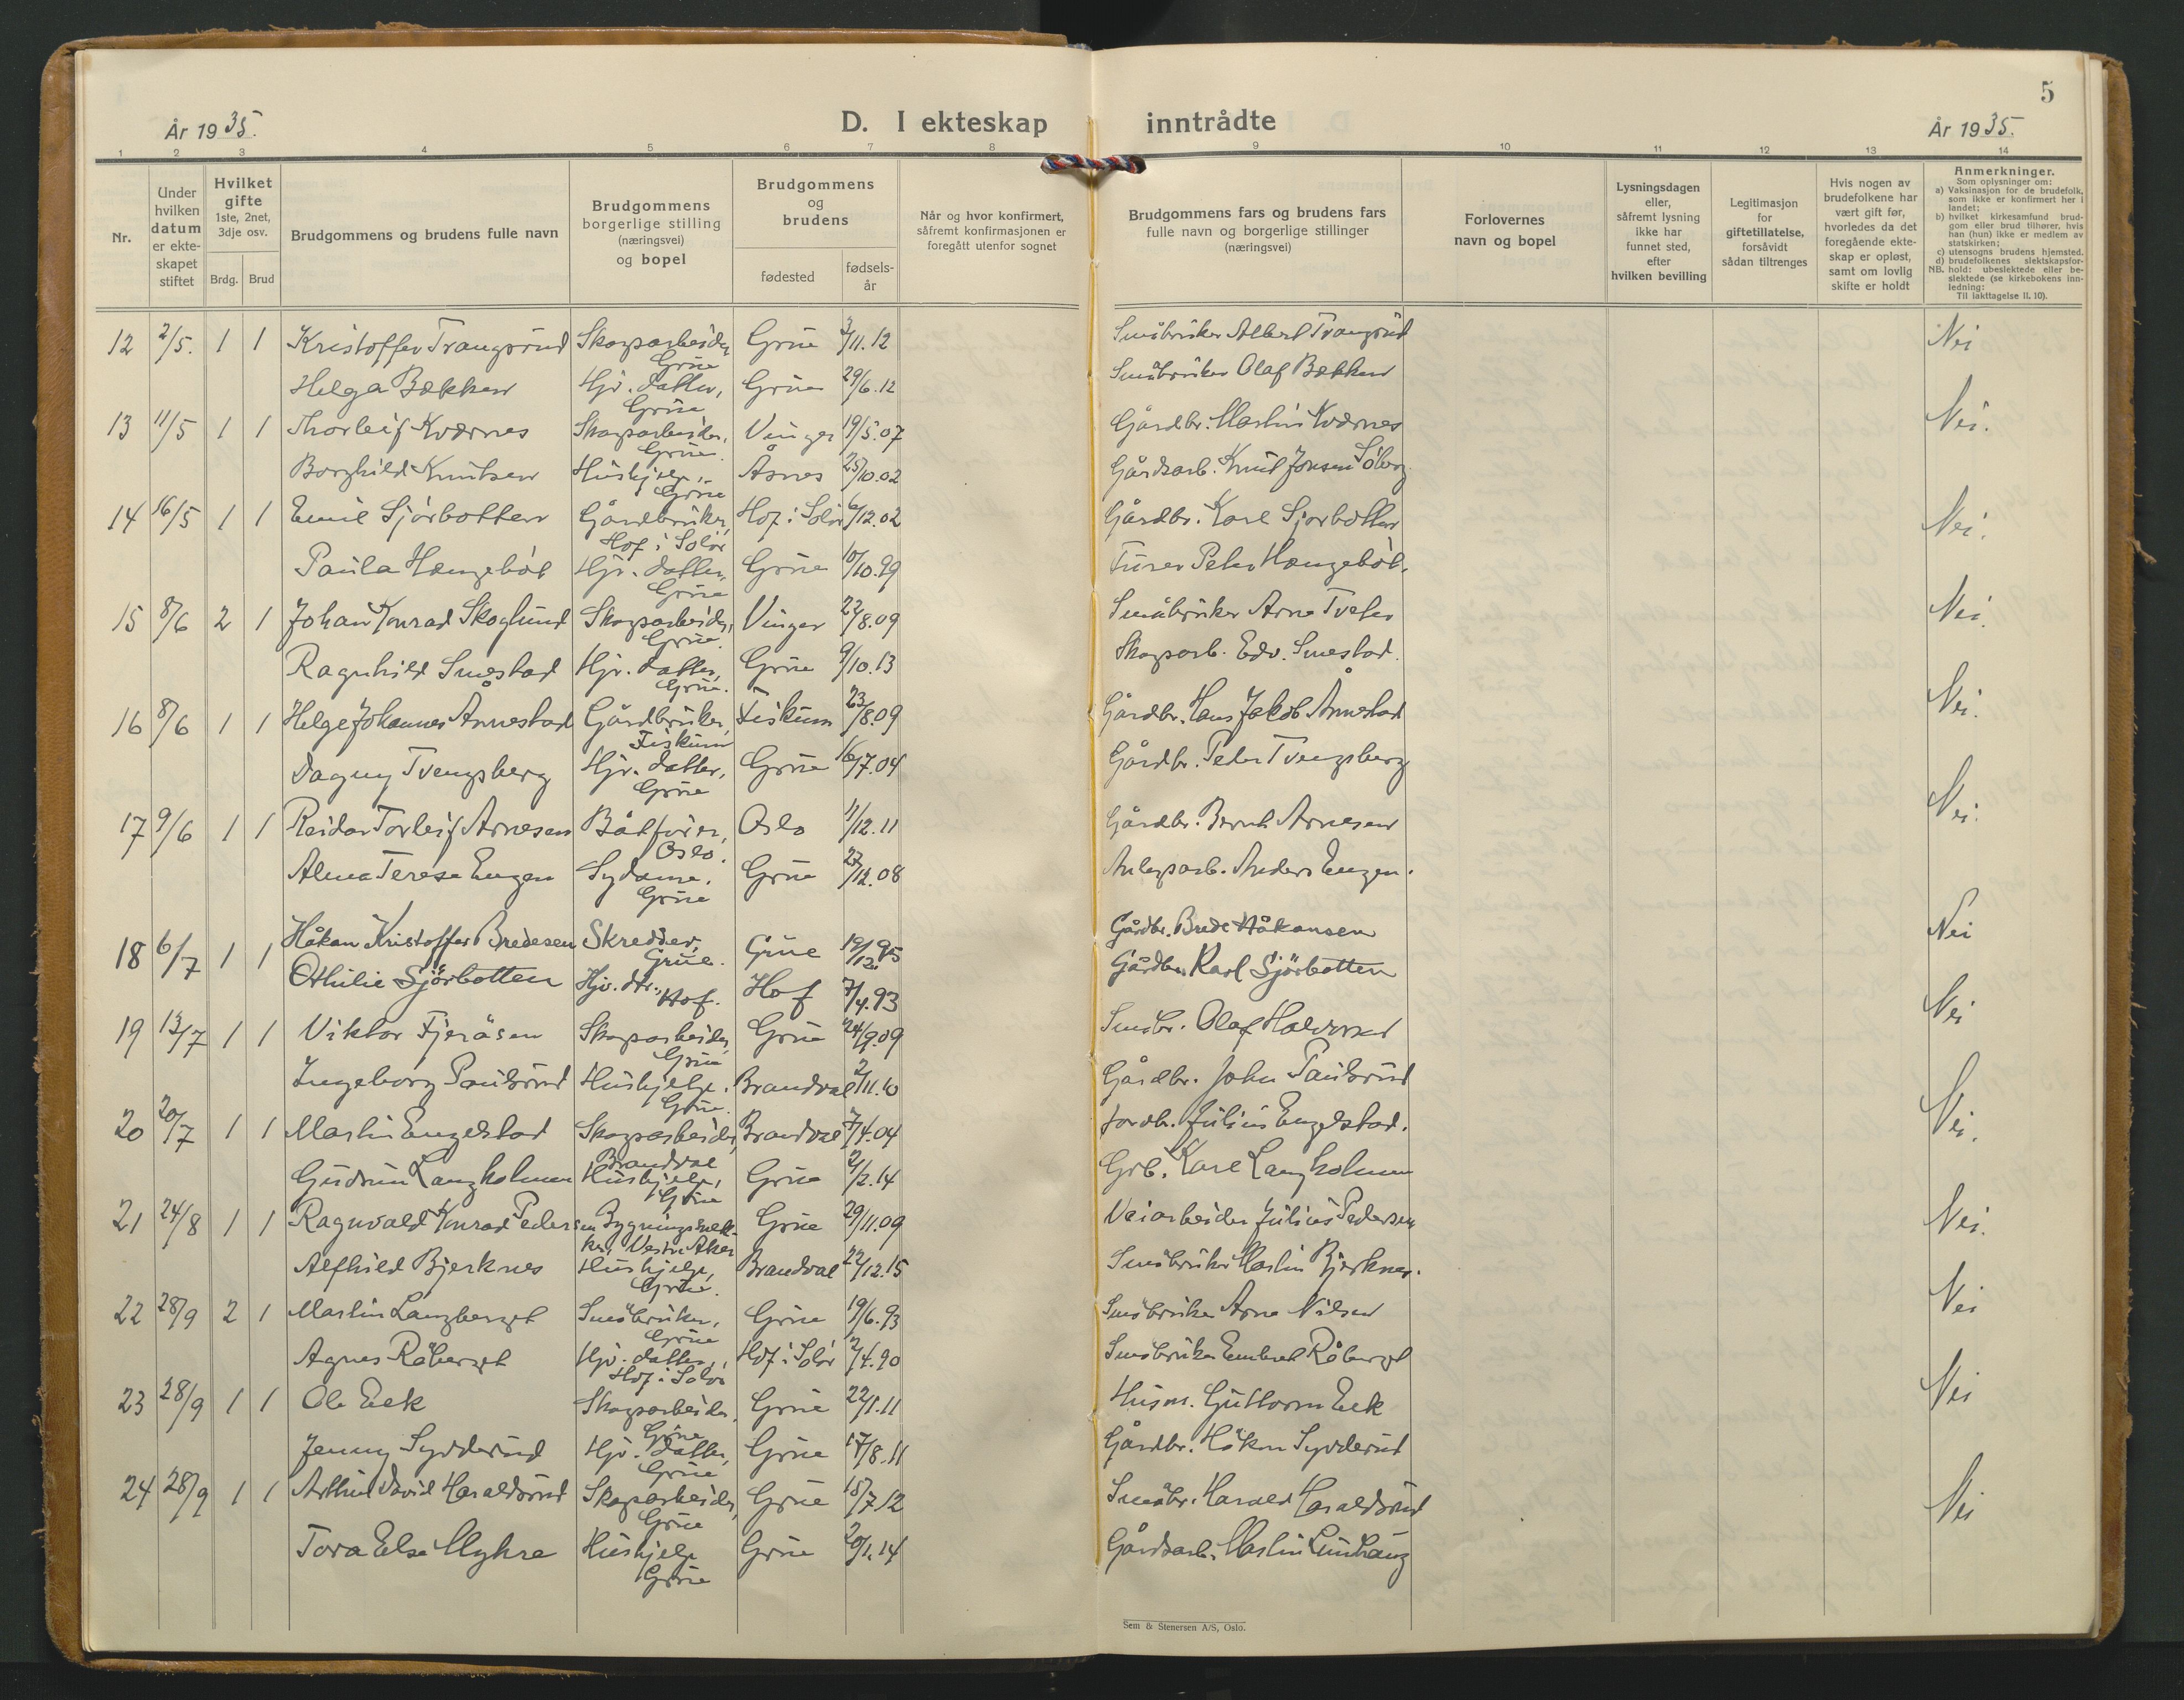 5
År 1935.
D. I ekteskap inntrådte
År 1935.
1 2 3 4 5 6 7 8 9 10 11 12 13 14
Nr.
Under hvilken datum er ekte- skapet stiftet
Hvilket gifte 1ste, 2net, 3dje osv.
Brdg. Brud
Brudgommens og brudens fulle navn
Brudgommens borgerlige stilling (næringsvei) og bopel
Brudgommens og brudens
fødested
fødsels- år
Når og hvor konfirmert, såfremt konfirmasjonen er foregått utenfor sognet
Brudgommens fars og brudens fars fulle navn og borgerlige stillinger (næringsvei)
Forlovernes navn og bopel
Lysningsdagen eller, såfremt lysning ikke har funnet sted, efter hvilken bevilling
Legitimasjon for giftetillatelse, forsåvidt sådan tiltrenges
Hvis nogen av brudefolkene har vært gift før, hvorledes da det foregående ekte- skap er opløst, samt om lovlig skifte er holdt
Anmerkninger.
Som oplysninger om:
a) Vaksinasjon for de brudefolk, som ikke er konfirmert her i landet;
b) hvilket kirkesamfund brud- gom eller brud tilhører, hvis han (hun) ikke er medlem av statskirken;
c) utensogns brudens hjemsted.
d) brudefolkenes slektskapsfor- hold: ubeslektede eller be- slektede (se kirkebokens inn- ledning:
NB. Til iakttagelse II, 10).
12 2/5. 1 1 Kristoffer Trangsrud Skogsarbeider, Grue Grue 3/11.12 Småbruker Albert Trangsrud Nei
Helga Bækken Hjv. datter, Grue Grue 29/6.12 Småbruker Olaf Bækken
13 11/5 1 1 Thorleif Kværnes Skogsarbeider, Grue. Vinger 19/5.07 Gårdbr. Martin Kværnes Nei.
Borghild Knutsen Hushjelp, Grue Åsnes 25/10.02 Gårdsarb. Knut Jonsen Söberg
14 16/5 1 1 Emil Sjörbotten Gårdbruker, Hof i Solör Hof i Solör 6/12.02 Gårdbr. Karl Sjörbotten Nei.
Paula Hengebøl Hjv. datter, Grue Grue 10/10.99 Peter Hengebøl.
15 8/6 2 1 Johan Konrad Skoglund Skogsarbeider, Grue. Vinger 22/8.09 Småbruker Arne Tveter Nei.
Ragnhild Smestad Hjv. datter, Grue. Grue 9/10.13 Skogsarb. Edv. Smestad.
16 8/6 1 1 Helge Johannes Årnestad Gårdbruker, Fiskum Fiskum 23/8.09 Gårdbr. Hans Jakob Årnestad Nei.
Dagny Tvengsberg Hjv. datter, Grue Grue 16/7.04 Gårdbr. Peder Tvengsberg
17 9/6 1 1 Reidar Torleif Arnesen Båtfører, Oslo. Oslo 11/12.11 Gårdbr. Bernt Arnesen Nei.
Alma Terese Engen Sydame, Grue Grue 27/12.08 Anlegsarb. Anders Engen.
18 6/7 1 1 Håkon Kristoffer Bredesen Skredder, Grue. Grue 19/12.95 Gårdbr. Brede Håkansen Nei
Othilie Sjörbotten Hjv. dtr., Hof. Hof 7/4.93 Gårdbr. Karl Sjörbotten
19 13/7 1 1 Viktor Fjeråsen Skogsarbeider, Grue Grue 24/9.09 Småbr. Olaf Halvorsen Nei
Ingeborg Paulsrud Hushjelp, Grue. Brandval 2/11.10 Gårdbr. John Paulsrud
20 20/7 1 1 Martin Engelstad Skogsarbeider, Brandval Brandval 7/4.04 Jordbr. Julius Engelstad. Nei.
Gudrun Langholmen Hushjelp, Grue Grue 2/2.14 Grb. Karl Langholmen
21 24/8 1 1 Ragnvald Konrad Pedersen Bygningssnek- ker, Vestre Aker Grue 29/11.09 Veiarbeider Julius Pedersen Nei.
Alfhild Bjerknes Hushjelp, Grue. Brandval 22/12.15 Småbruker Martin Bjerknes.
22 28/9 2 1 Martin Langberget Småbruker, Grue Grue 19/6.93 Småbruker Arne Nilsen Nei
Agnes Råberget Hjv. datter, Hof i Solör Hof i Solör 7/4.90 Småbruker Embret Råberget
23 28/9 1 1 Ole Eek Skogsarbeider, Grue Grue 22/1.11 Husm. Guttorm Eek Nei
Jenny Sydderud Hjv. datter, Grue Grue 17/8.11 Gårdbr. Håkon Sydderud
24 28/9 1 1 Arthur David Haraldsrud Skogsarbeider, Grue Grue 18/7.12 Småbr. Harald Haraldsrud Nei
Tora Else Myhre Hushjelp Grue Grue 20/1.14 Gårdsarb. Martin Lundhaug
Sem & Stenersen A/S, Oslo.